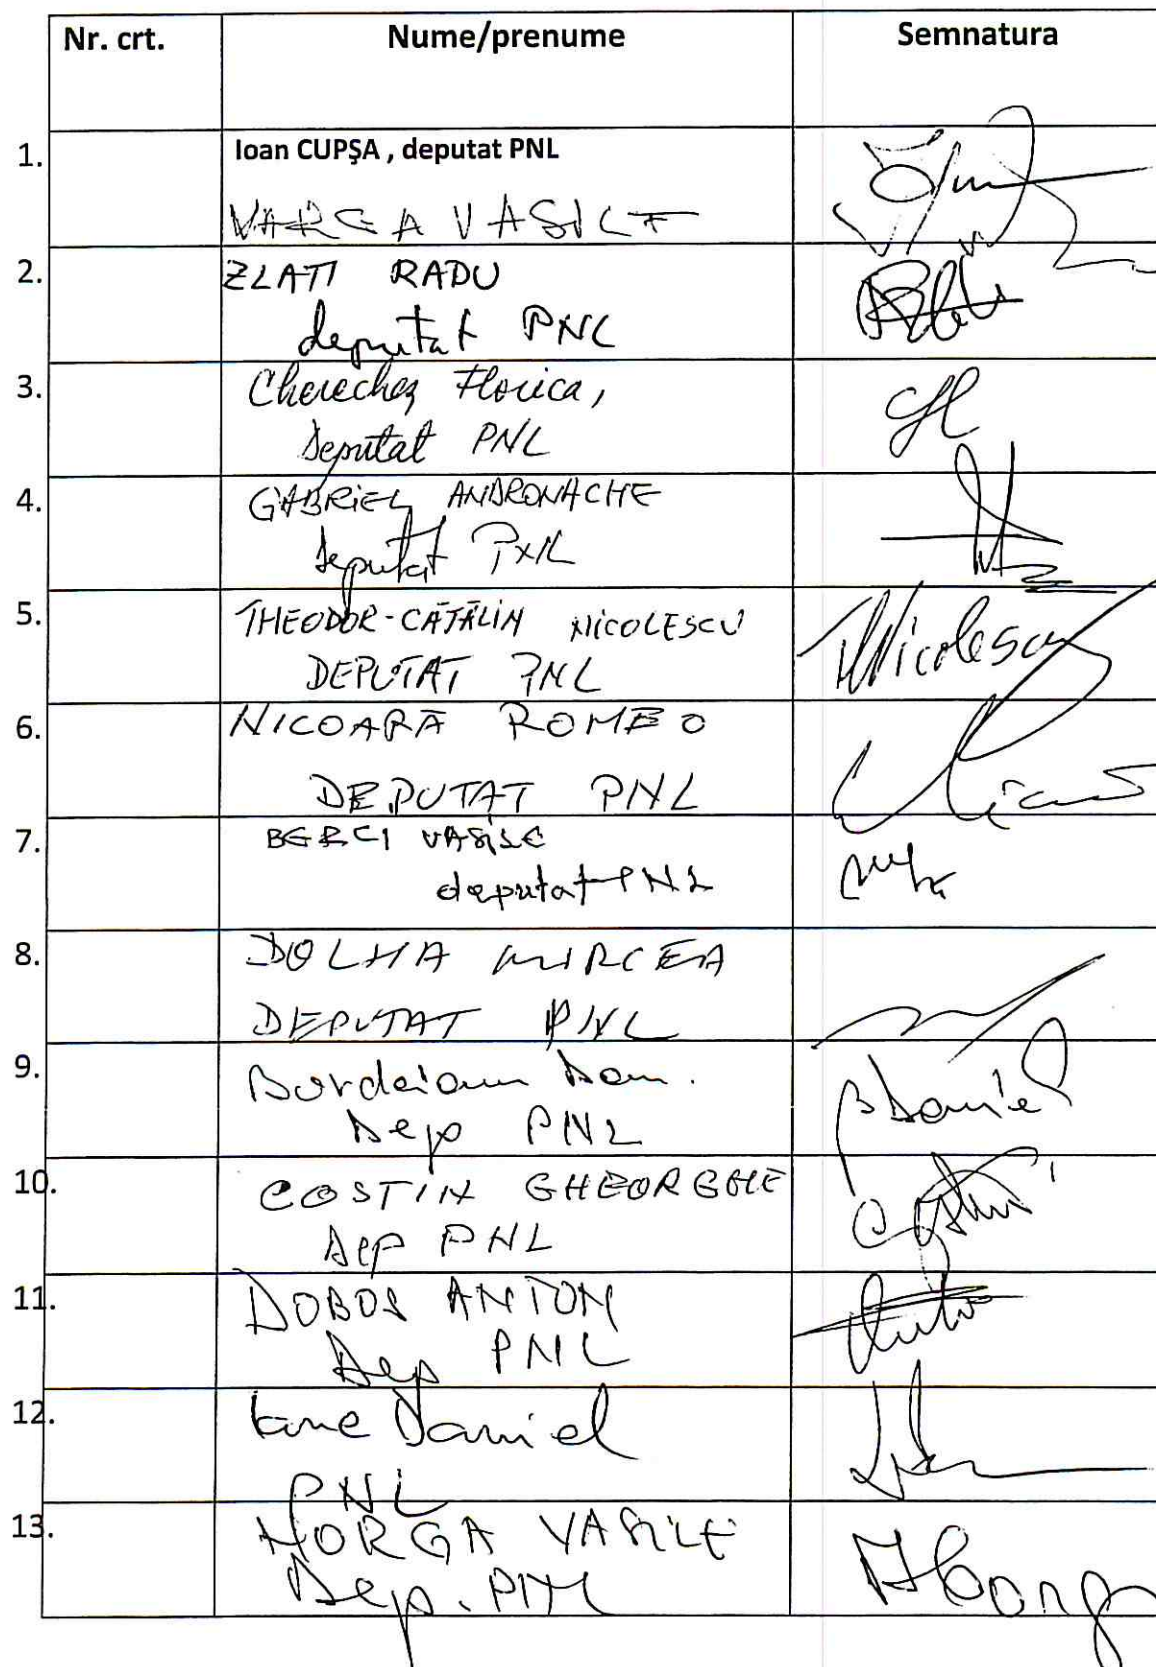 Nr. crt. Nume/prenume Semnatura
1. Ioan CUPȘA , deputat PNL
VARGA VASILE
2. ZLATI RADU
deputat PNL
3. Cherecheș Florica,
Deputat PNL
4. GABRIEL ANDRONACHE
Deputat PNL
5. THEODOR-CĂTĂLIN NICOLESCU TNicolescu
DEPUTAT PNL
6. NICOARĂ ROMEO
DEPUTAT PNL
7. BERCI VASILE
deputat PNL
8. DOLHA MIRCEA
DEPUTAT PNL
9. Bordeianu Dan.
Dep PNL BDaniel
10. COSTIN GHEORGHE Costin
Dep PNL
11. DOBOS ANTON
Dep PNL
12. Iane Daniel
PNL
13. HORGA VASILE
Dep. PNL